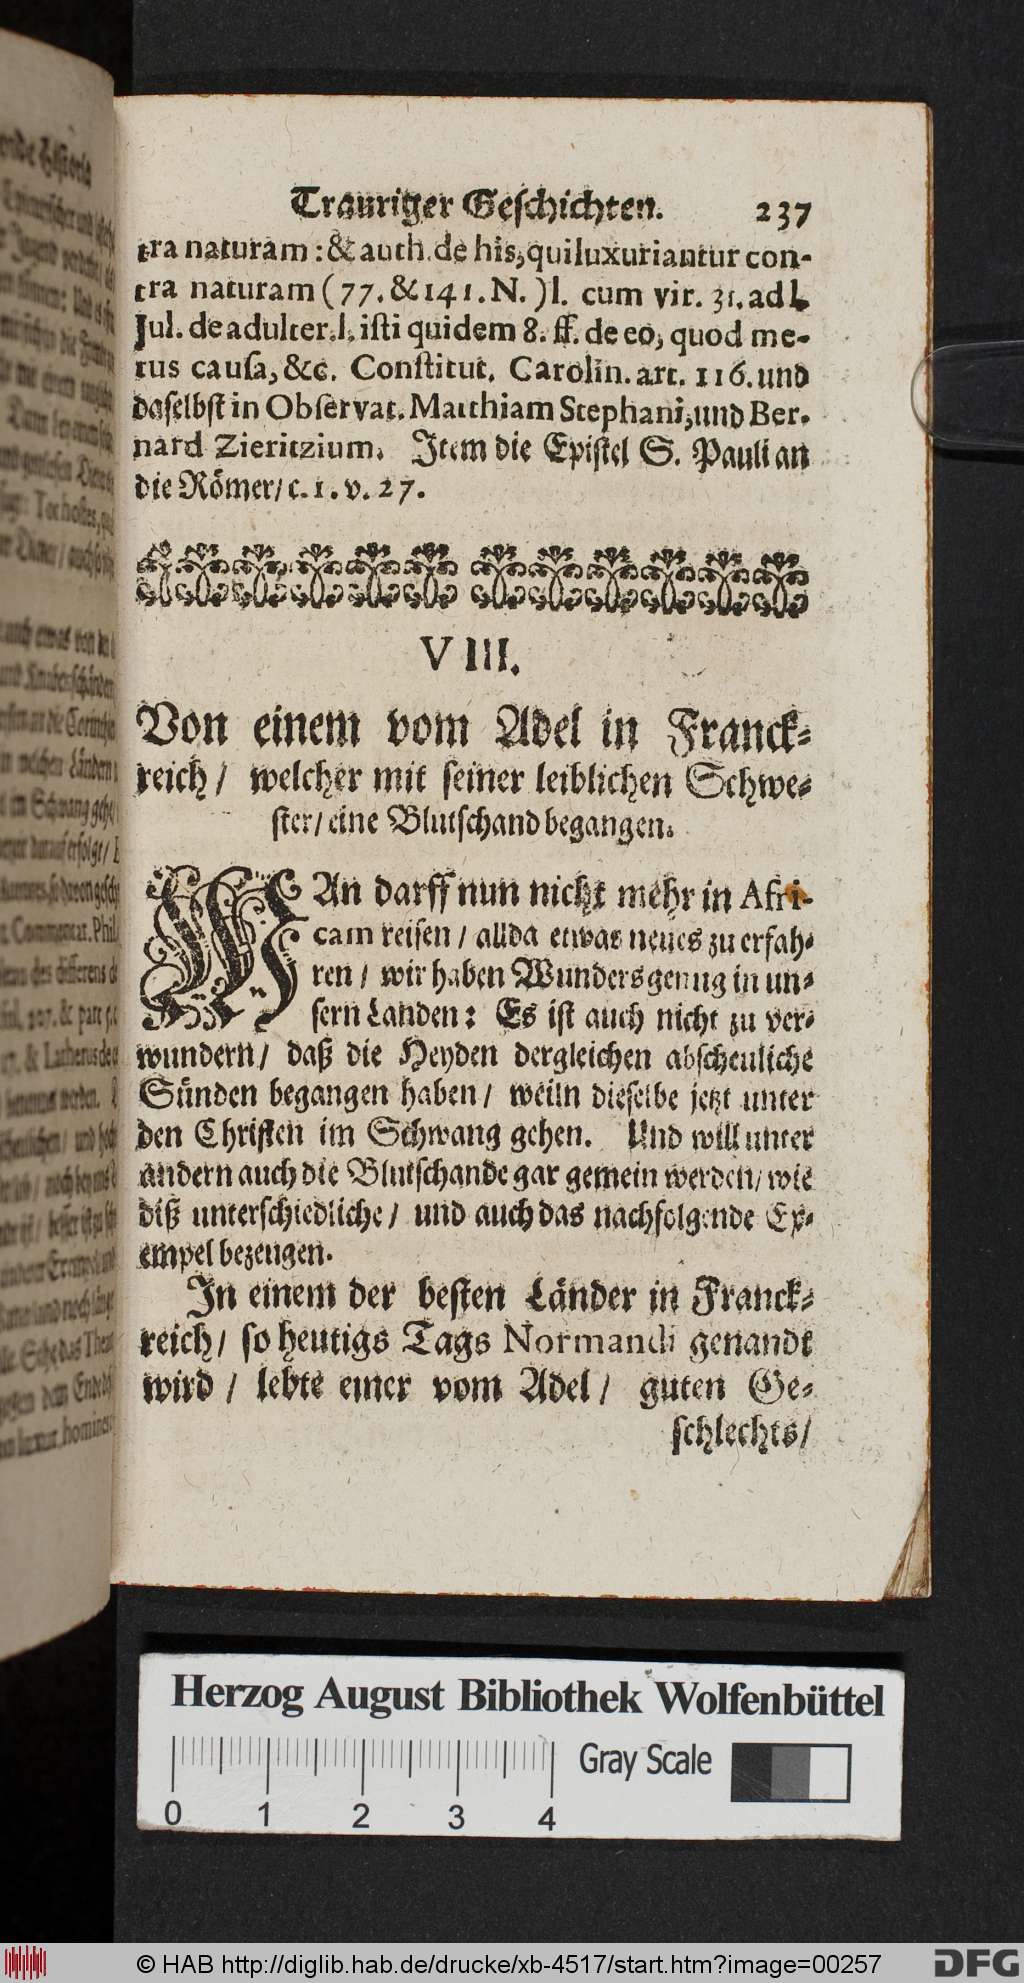 Trauriger Geschichten. 237
tra naturam: & auth. de his, qui luxuriantur con-
tra naturam (77. & 141. N.) l. cum vir. 31. ad l.
Jul. de adulter. l. isti quidem 8. ff. de eo, quod me-
tus causa, &c. Constitut. Carolin. art. 116. und
daselbst in Observat. Matthiam Stephani, und Ber-
nard Zieritzium. Item die Epistel S. Pauli an
die Römer/ c. 1. v. 27.
VIII.
Von einem vom Adel in Franck-
reich/ welcher mit seiner leiblichen Schwe-
ster/ eine Blutschand begangen.
MAn darff nun nicht mehr in Afri-
cam reisen/ allda etwas neues zu erfah-
ren/ wir haben Wunders genug in un-
sern Landen: Es ist auch nicht zu ver-
wundern/ daß die Heyden dergleichen abscheuliche
Sünden begangen haben/ weiln dieselbe jetzt unter
den Christen im Schwang gehen. Und will unter
andern auch die Blutschande gar gemein werden/ wie
diß unterschiedliche/ und auch das nachfolgende Ex-
empel bezeugen.
In einem der besten Länder in Franck-
reich/ so heutigs Tags Normandi genandt
wird/ lebte einer vom Adel/ guten Ge-
schlechts/
Herzog August Bibliothek Wolfenbüttel
Gray Scale
0 1 2 3 4
© HAB http://diglib.hab.de/drucke/xb-4517/start.htm?image=00257
DFG